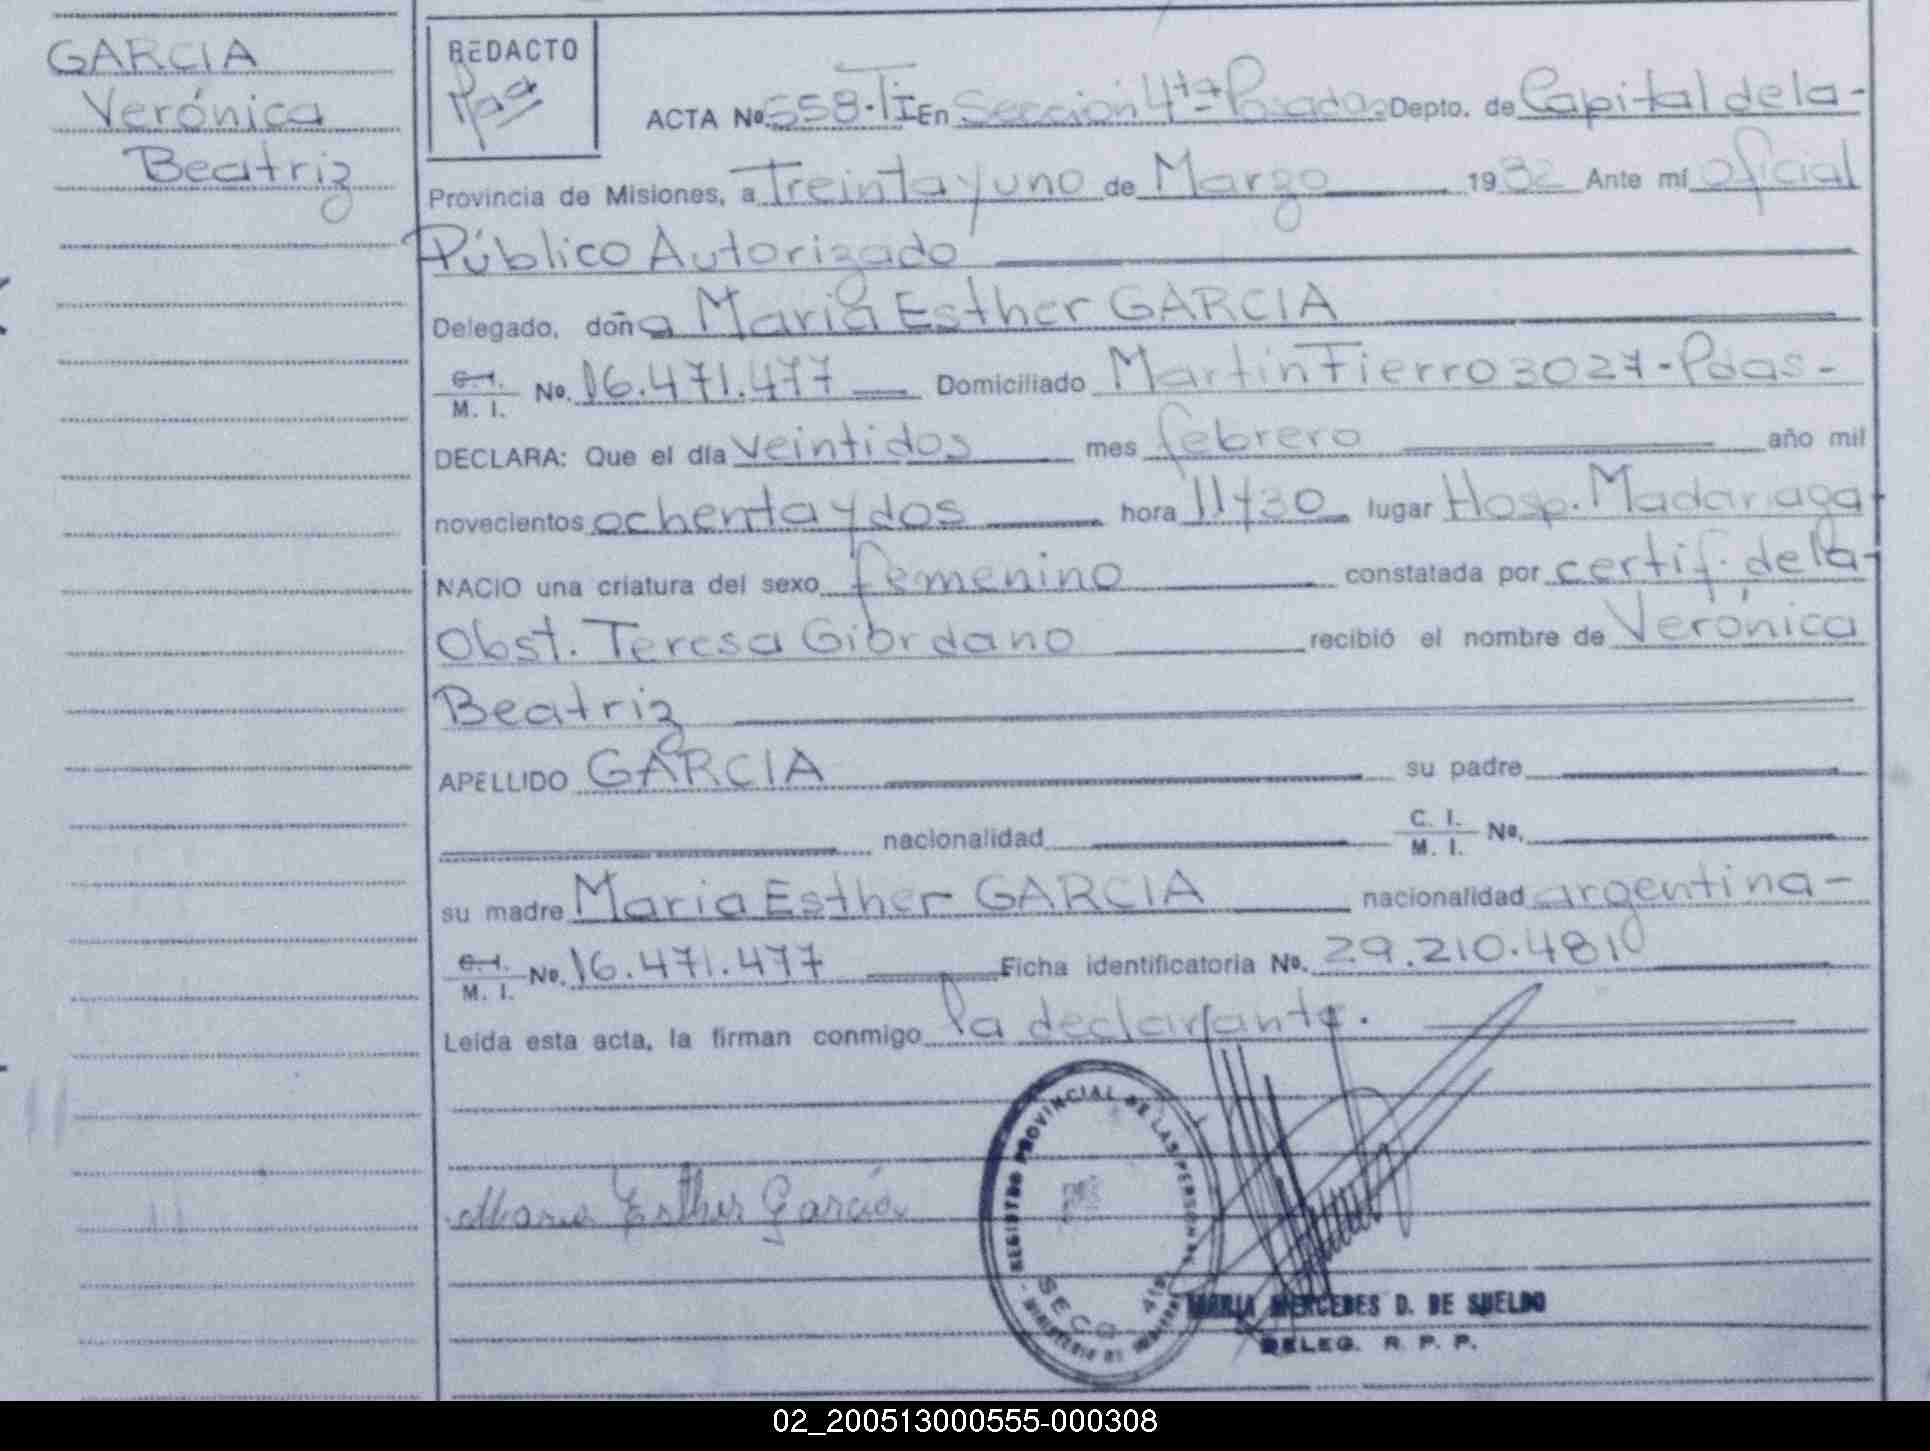 GARCIA
Verónica
Beatriz
REDACTO
ACTA Nº 558-TI En Sección 4ta Posadas Depto. de Capital de la-
Provincia de Misiones, a Treinta y uno de Marzo 1982 Ante mí oficial
Público Autorizado
Delegado, doña Maria Esther GARCIA
C. I.
M. I. No. 16.471.477 Domiciliado Martín Fierro 3027-Pdas-
DECLARA: Que el día veintidos mes febrero año mil
novecientos ochenta y dos hora 11y30 lugar Hosp. Madariaga
NACIO una criatura del sexo femenino constatada por certif. de la-
Obst. Teresa Giordano recibió el nombre de Verónica
Beatriz
APELLIDO GARCIA su padre
nacionalidad C. I.
M. I. No.
su madre Maria Esther GARCIA nacionalidad argentina-
C. I.
M. I. No. 16.471.477 Ficha identificatoria No. 29.210.481
Leída esta acta, la firman conmigo la declarante.
Maria Esther García
REGISTRO PROVINCIAL DE LAS PERSONAS
SECC. 4ta
MINISTERIO DE
MARIA MERCEDES D. DE SUELDO
DELEG. R. P. P.
02_200513000555-000308